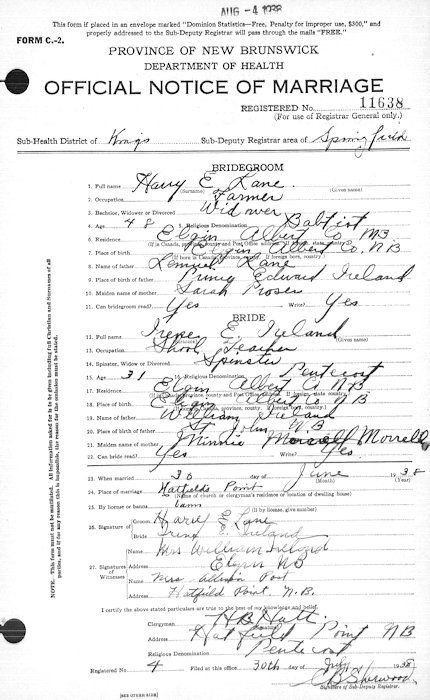 AUG -4 1938
This form if placed in an envelope marked "Dominion Statistics—Free, Penalty for improper use, $300," and
properly addressed to the Sub-Deputy Registrar will pass through the mails "FREE."
FORM C.-2.
PROVINCE OF NEW BRUNSWICK
DEPARTMENT OF HEALTH
OFFICIAL NOTICE OF MARRIAGE
REGISTERED No. 11638
(For use of Registrar General only.)
Sub-Health District of Kings Sub-Deputy Registrar area of Springfield
BRIDEGROOM
1. Full name Harry E Kane
(Surname) (Given names)
2. Occupation Farmer
3. Bachelor, Widower or Divorced Widower
4. Age 48 5. Religious Denomination Babtist
6. Residence Elgin Albert Co NB
7. Place of birth Elgin Albert Co. NB
8. Name of father Lemuel Kane
9. Place of birth of father Prince Edward Ireland
10. Maiden name of mother Sarah Prosser
11. Can bridegroom read? Yes Write? Yes
BRIDE
11. Full name Irene E Ireland
(Surname) (Given names)
13. Occupation School Teacher
14. Spinster, Widow or Divorced Spinster
15. Age 31 16. Religious Denomination Pentecost
17. Residence Elgin Albert Co NB
18. Place of birth Elgin Albert Co NB
19. Name of father William Ireland
20. Place of birth of father St John NB
21. Maiden name of mother Minnie Morrell
22. Can bride read? Yes Write? Yes.
23. When married 30 day of June 1938
(Month) (Year)
24. Place of marriage Hatfields Point
(Name of church or clergyman's residence or location of dwelling house)
25. By license or banns
(If by license, give number)
26. Signature of Groom Harry E Kane
Bride Irene E. Ireland
Name Mrs William Ireland
27. Signature of Witnesses Address Elgin NB
Name Mrs. Allison Post
Address Hatfield Point N.B.
I certify the above stated particulars are true to the best of my knowledge and belief.
Clergyman H B Hatt
Address Hatfield Point NB
Religious Denomination Pentecost
Registered No. 4 Filed at this office 30th day of July 1938
B Sherwood
Signature of Sub-Deputy Registrar.
[SEE OTHER SIDE]
This form must not be mutilated. All information asked for is to be given including full Christian and Surnames of all
parties, and if for any reason this is impossible, the reason for the omission must be stated.